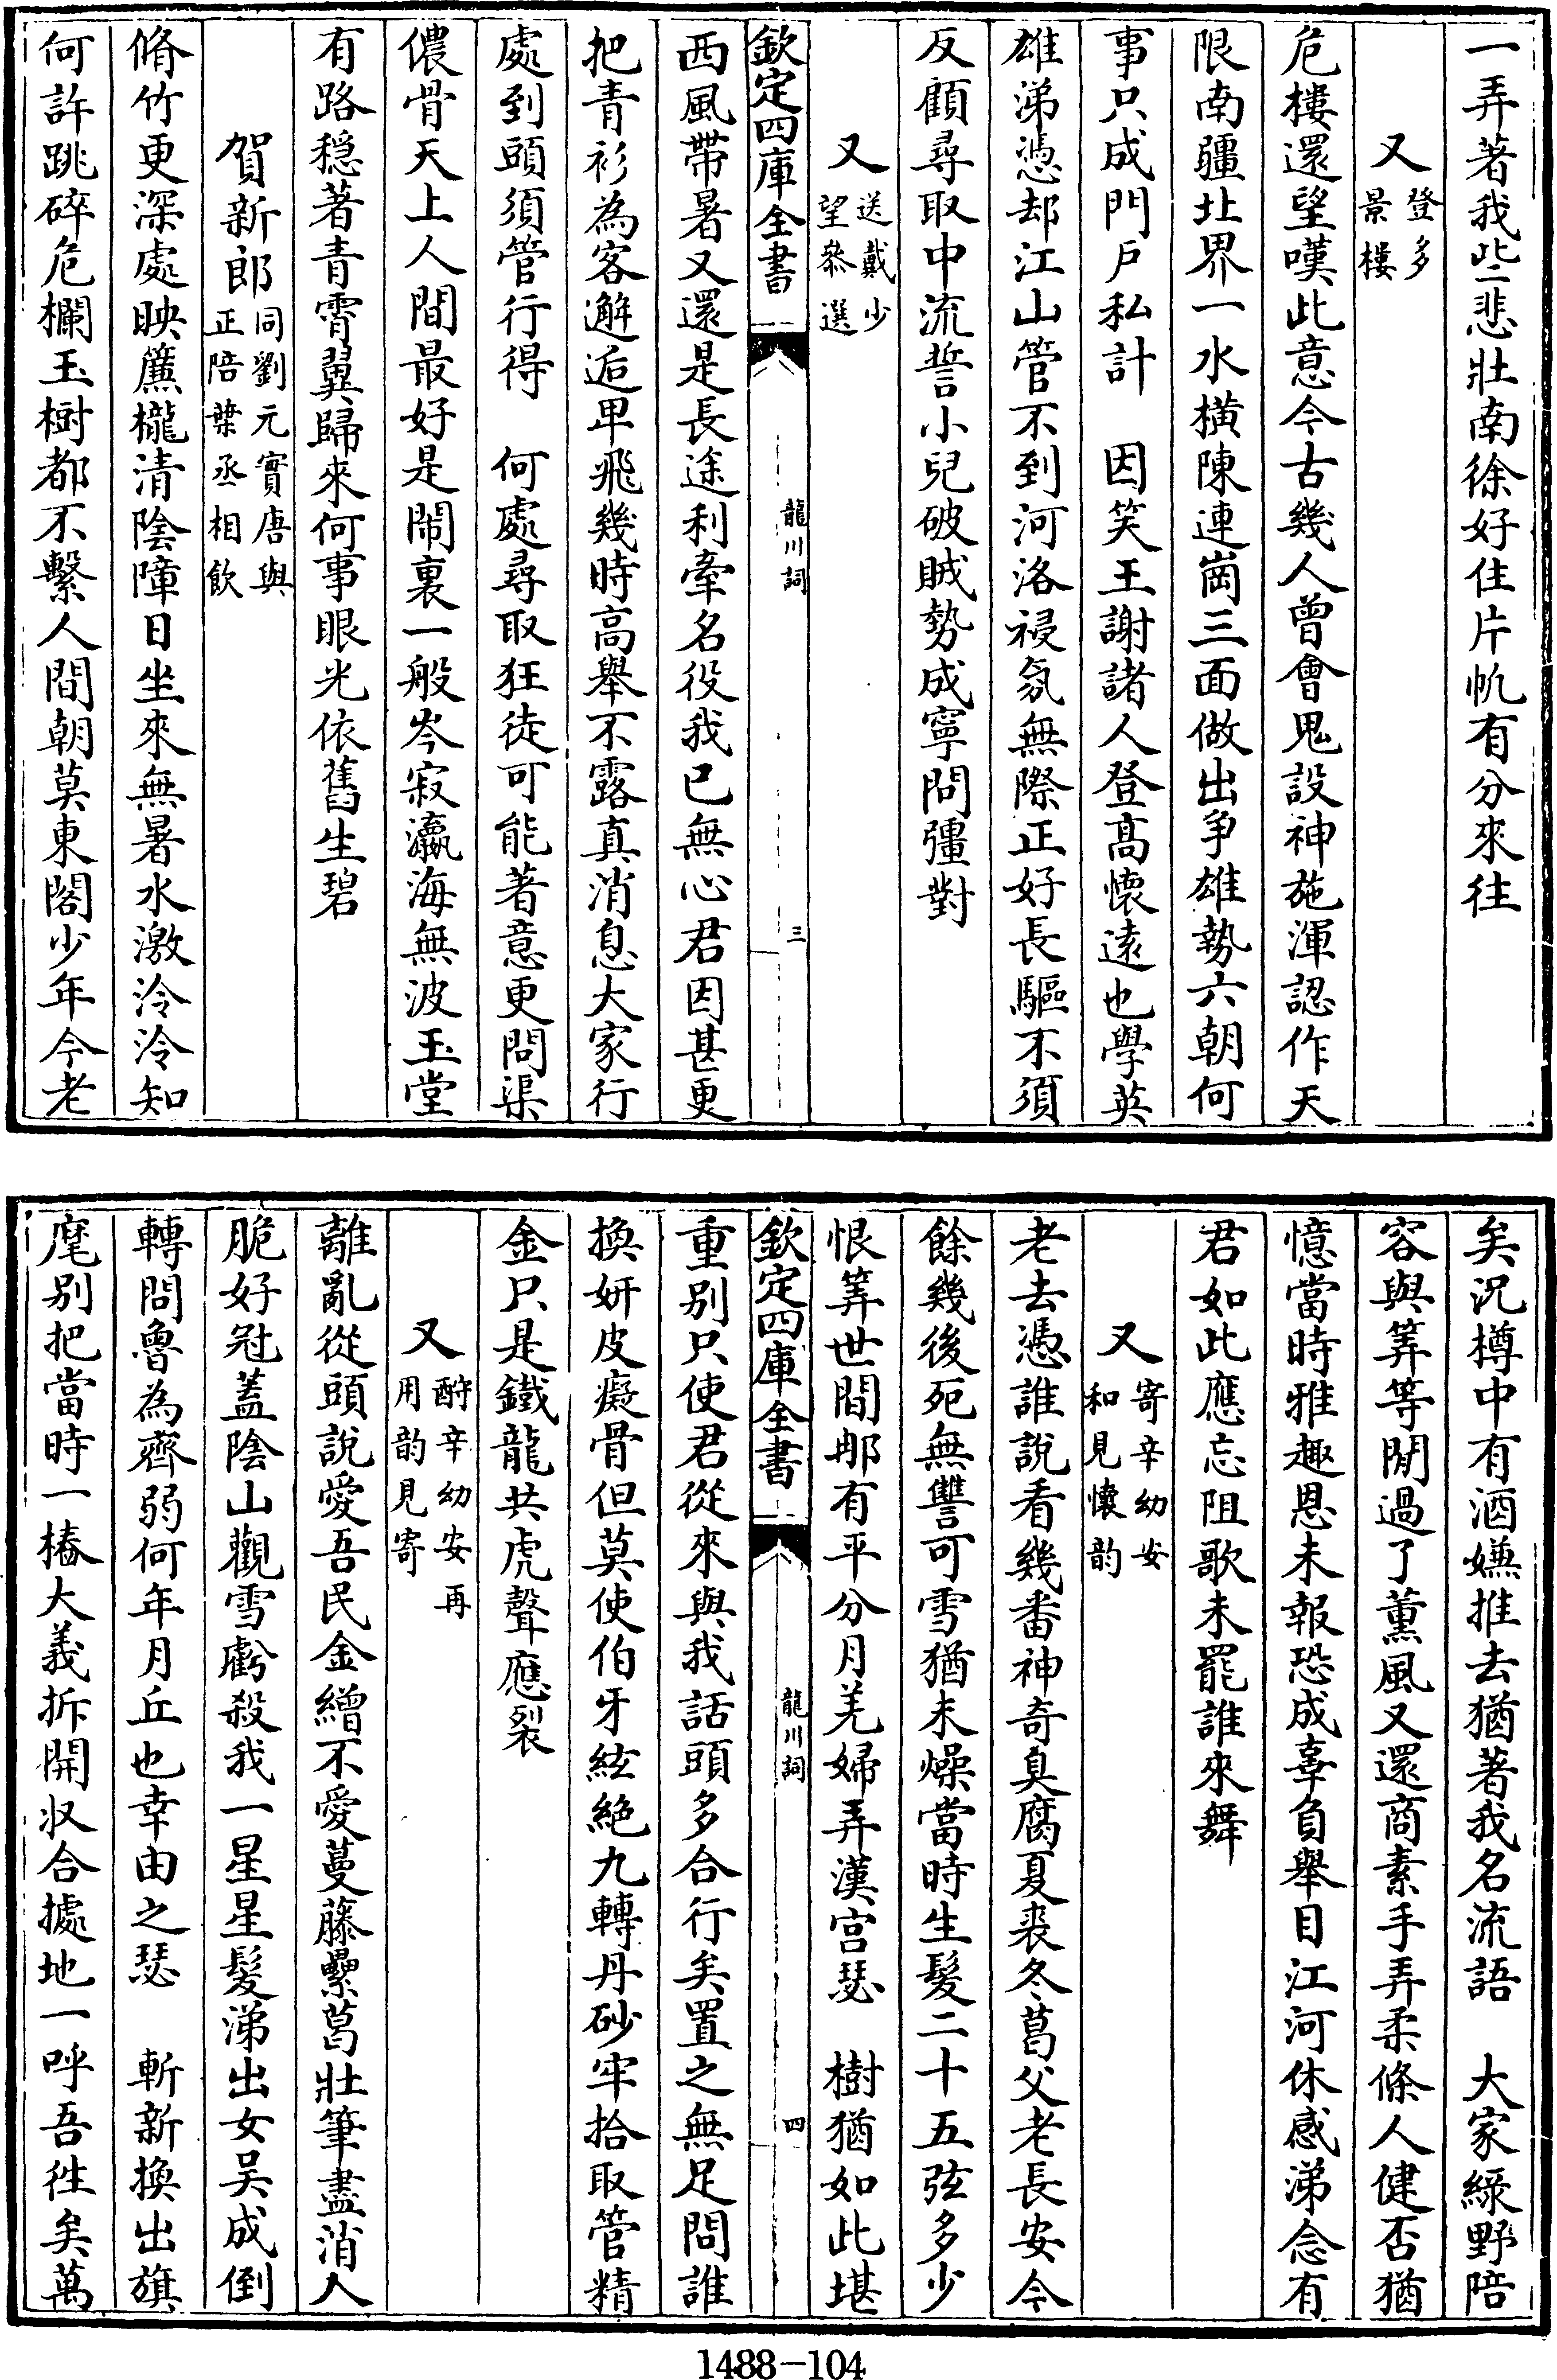 一弄著我些悲壯南徐好住片帆有分來往
又登多景樓
危樓還望嘆此意今古幾人曾會鬼設神施渾認作天
限南疆北界一水橫陳連崗三面做出爭雄勢六朝何
事只成門戶私計　因笑王謝諸人登高懷遠也學英
雄涕憑却江山管不到河洛祲氛無際正好長驅不須
反顧尋取中流誓小兒破賊勢成寧問彊對
又送戴少望叅選
欽定四庫全書　龍川詞　三
西風帶暑又還是長途利牽名役我已無心君因甚更
把青衫為客邂逅卑飛幾時高舉不露真消息大家行
處到頭須管行得　何處尋取狂徒可能著意更問渠
儂骨天上人間最好是鬧裏一般岑寂瀛海無波玉堂
有路穩著青霄翼歸來何事眼光依舊生碧
賀新郎同劉元實唐與正陪葉丞相飲
脩竹更深處映簾櫳清陰障日坐來無暑水激泠泠知
何許跳碎危欄玉樹都不繫人間朝莫東閣少年今老
矣況樽中有酒嫌推去猶著我名流語　大家綠野陪
容與筭等閒過了薰風又還商素手弄柔條人健否猶
憶當時雅趣恩未報恐成辜負舉目江河休感涕念有
君如此應忘阻歌未罷誰來舞
又寄辛幼安和見懷韵
老去憑誰說看幾番神奇臭腐夏裘冬葛父老長安今
餘幾後死無讐可雪猶未燥當時生髮二十五弦多少
恨筭世間那有平分月羌婦弄漢宮瑟　樹猶如此堪
欽定四庫全書　龍川詞　四
重別只使君從來與我話頭多合行矣置之無足問誰
換妍皮癡骨但莫使伯牙絃絕九轉丹砂牢拾取管精
金只是鐵龍共虎聲應裂
又酧辛幼安再用韵見寄
離亂從頭說愛吾民金繒不愛蔓藤纍葛壯筆盡消人
脆好冠蓋陰山觀雪虧殺我一星星髮涕出女吳成倒
轉問魯為齊弱何年月丘也幸由之瑟　斬新換出旗
麾別把當時一樁大義拆開収合據地一呼吾徃矣萬
1488—104